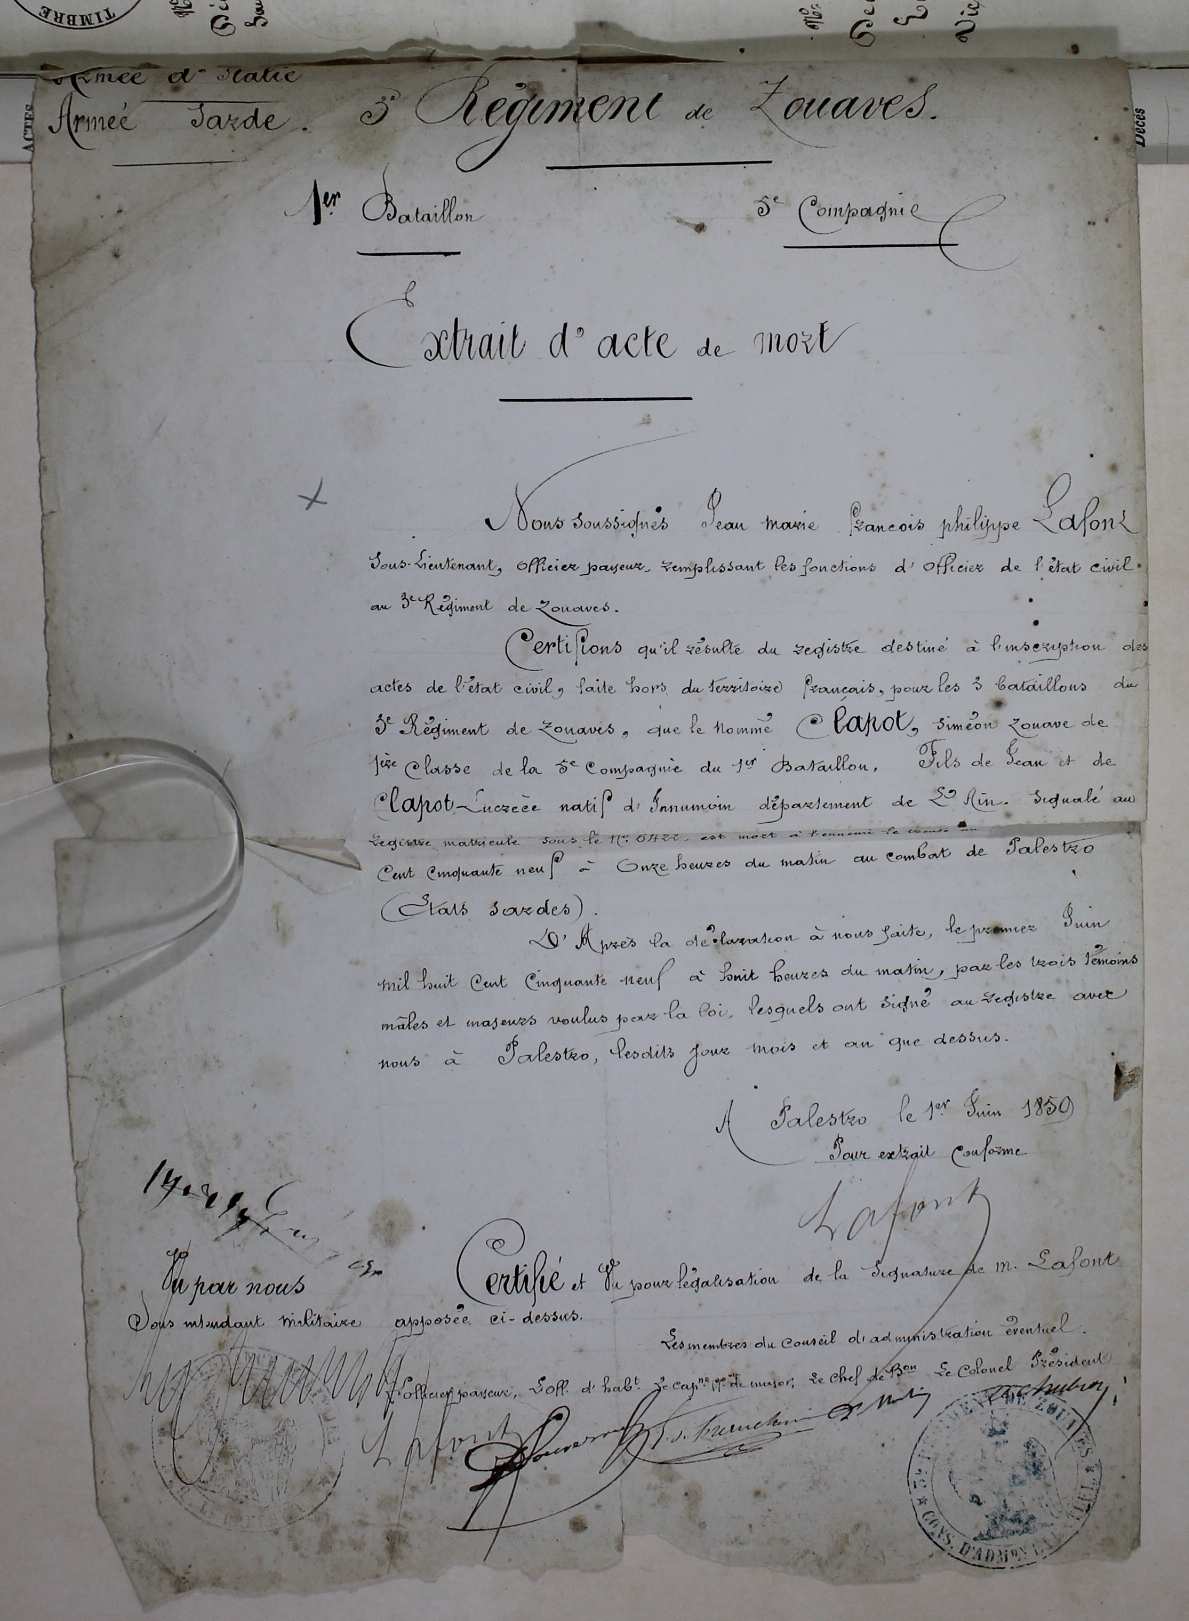 TIMBRE
ACTES
Décès
Armée d'Italie
Armée Sarde.
3e Régiment de Zouaves.
1er Bataillon
5e Compagnie
Extrait d'acte de mort
Nous soussignés Jean Marie francois philippe Lafont
Sous-Lieutenant, officier payeur, remplissant les fonctions d'officier de l'état civil
au 3e Régiment de Zouaves.
Certifions qu'il résulte du registre destiné à l'inscription des
actes de l'état civil, faite hors du territoire français, pour les 3 bataillons du
3e Régiment de Zouaves, que le nommé Clapot, Siméon Zouave de
1ère Classe de la 5e Compagnie du 1er Bataillon, Fils de Jean et de
Clapot-Lucrèce natif d'Innumoin département de L'Ain. Signalé au
registre matricule sous le No est mort à l'ennemi le
Cent Cinquante neuf à Onze heures du matin au combat de Palestro
(Etats Sardes).
D'Après la déclaration à nous faite, le premier Juin
mil huit cent cinquante neuf à huit heures du matin, par les trois témoins
mâles et majeurs voulus par la loi, lesquels ont signé au registre avec
nous à Palestro, lesdits jour mois et an que dessus.
A Palestro le 1er Juin 1859
Pour extrait conforme
Lafont
Vu par nous
Sous intendant Militaire
Certifié et Vu pour légalisation de la Signature de M. Lafont
apposée ci-dessus.
Les membres du Conseil d'administration éventuel.
L'officier payeur, L'off. d'habt. Le Chef de Bon Le Colonel Président
Lafont
3e RÉGIMENT DE ZOUAVES
CONS. D'ADMON EVENTUEL